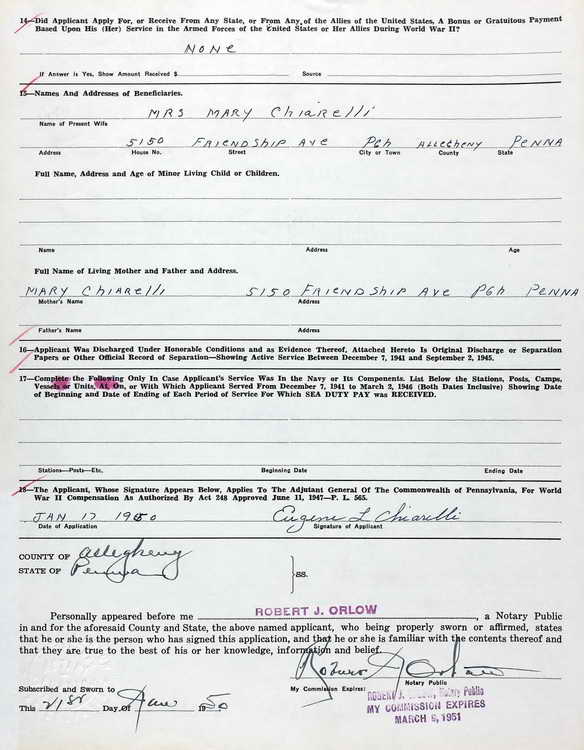 14—Did Applicant Apply For, or Receive From Any State, or From Any of the Allies of the United States, A Bonus or Gratuitous Payment
Based Upon His (Her) Service in the Armed Forces of the United States or Her Allies During World War II?
NONE
If Answer is Yes, Show Amount Received $ Source
15—Names And Addresses of Beneficiaries.
MRS MARY Chiarelli
Name of Present Wife
5150 FRIENDSHIP AVE PGh ALLEGHENY PENNA
Address House No. Street City or Town County State
Full Name, Address and Age of Minor Living Child or Children.
Name Address Age
Full Name of Living Mother and Father and Address.
MARY ChiARElli 5150 FRIENDShip AVE PGh PENNA
Mother's Name Address
Father's Name Address
16—Applicant Was Discharged Under Honorable Conditions and as Evidence Thereof, Attached Hereto Is Original Discharge or Separation
Papers or Other Official Record of Separation—Showing Active Service Between December 7, 1941 and September 2, 1945.
17—Complete the Following Only In Case Applicant's Service Was In the Navy or Its Components. List Below the Stations, Posts, Camps,
Vessels or Units, At, On, or With Which Applicant Served From December 7, 1941 to March 2, 1946 (Both Dates Inclusive) Showing Date
of Beginning and Date of Ending of Each Period of Service For Which SEA DUTY PAY was RECEIVED.
Stations—Posts—Etc. Beginning Date Ending Date
18—The Applicant, Whose Signature Appears Below, Applies To The Adjutant General Of The Commonwealth of Pennsylvania, For World
War II Compensation As Authorized By Act 248 Approved June 11, 1947—P. L. 565.
JAN 17 1950 Eugene L Chiarelli
Date of Application Signature of Applicant
COUNTY OF Allegheny
STATE OF Penna
}ss.
Personally appeared before me ROBERT J. ORLOW, a Notary Public
in and for the aforesaid County and State, the above named applicant, who being properly sworn or affirmed, states
that he or she is the person who has signed this application, and that he or she is familiar with the contents thereof and
that they are true to the best of his or her knowledge, information and belief.
Robert J Orlow
Subscribed and Sworn to My Commission Expires: Notary Public
ROBERT J. ORLOW, Notary Public
This 21st Day of Jan 1950
MY COMMISSION EXPIRES
MARCH 6, 1951